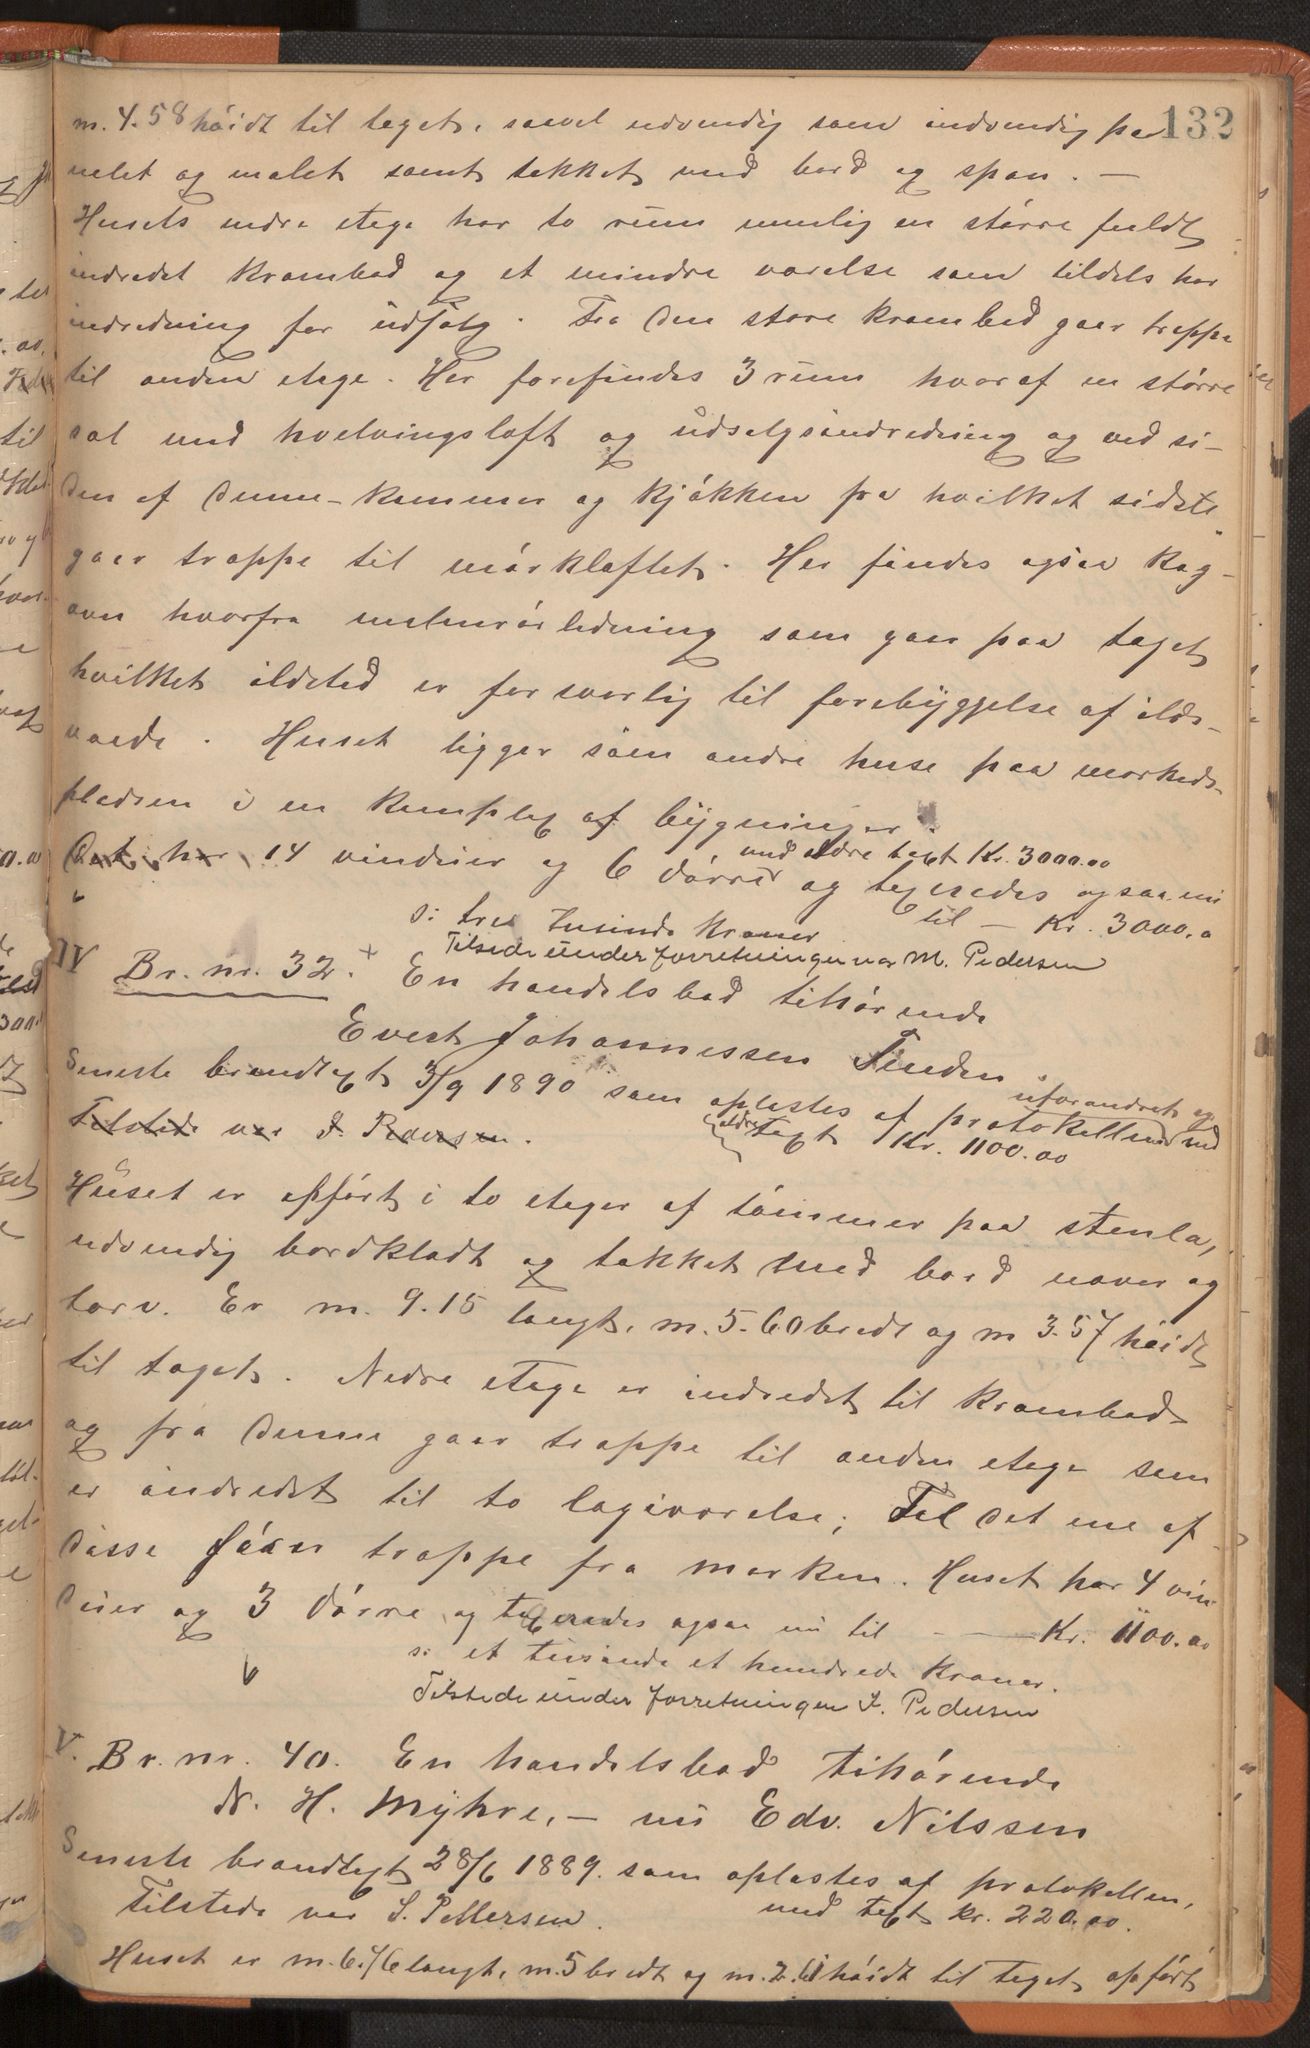 132
m. 4.58 höidt til taget, saavel udvendig som indvendig pa
nelet og malet samt tækket med bord og spon. —
Husets nedre etage har to rum nemlig en större fuldt
indredet krambod og et mindre værelse som tildels har
indredning for udsalg. Fra den store krambod gaar trappe
til anden etage. Her forefindes 3 rum hvoraf en större
sal med hvelvingsloft og udsalgsindredning og ved si-
den af denne kammer og kjökken fra hvilket sidste
gaar trappe til mörkloftet. Her findes ogsaa kog-
ovn hvorfra rörledning som gaar paa taget
hvilket ildsted er forsvarlig til forebyggelse af ilds-
vaade. Huset ligger som andre huse paa markeds-
pladsen i en kompleg af bygninger.
med ældre taxt Kr. 3000.00
Det har 14 vinduer og 6 dörre og taxeredes ogsaa nu
til — Kr. 3000.0
s: tre tusinde Kroner
Tilstede under forretningen var M. Pedersen
IV Br. nr. 32. + En handelsbod tihörende
Evert Johannessen Tinden.
Seneste brandtaxt 3/9 1890 som oplæstes af protokollen uforandret og med
ældre taxt Kr. 1100.00
Tilstede var I. Pedersen.
Huset er opfört i to etager af tömmer paa stenla,
udvendig bordklædt og tækket med bord næver og
torv. Er m. 9.15 langt, m. 5.60 bredt og m 3.57 höidt
til taget. Nedre etage er indredet til krambod
og fra denne gaar trappe til anden etage som
er indredet til to lagivørelse; Til det ene af
disse förer trappe fra marken. Huset har 4 vin
duer og 3 dörre og taxeredes ogsaa nu til — Kr. 1100.00
s: et tusinde et hundrede Kroner.
Tilstede under forretningen I. Pedersen
V. Br. nr. 40. En handelsbod tihörende
N. H. Myhre, — nu Edv. Nilssen
Seneste brandtaxt 28/6 1889. som oplæstes af protokollen,
med taxt kr. 220.00.
Tilstede var S. Pettersen.
Huset er m. 6.46 langt, m. 5 bredt og m. 2.61 höidt til taget, opfört